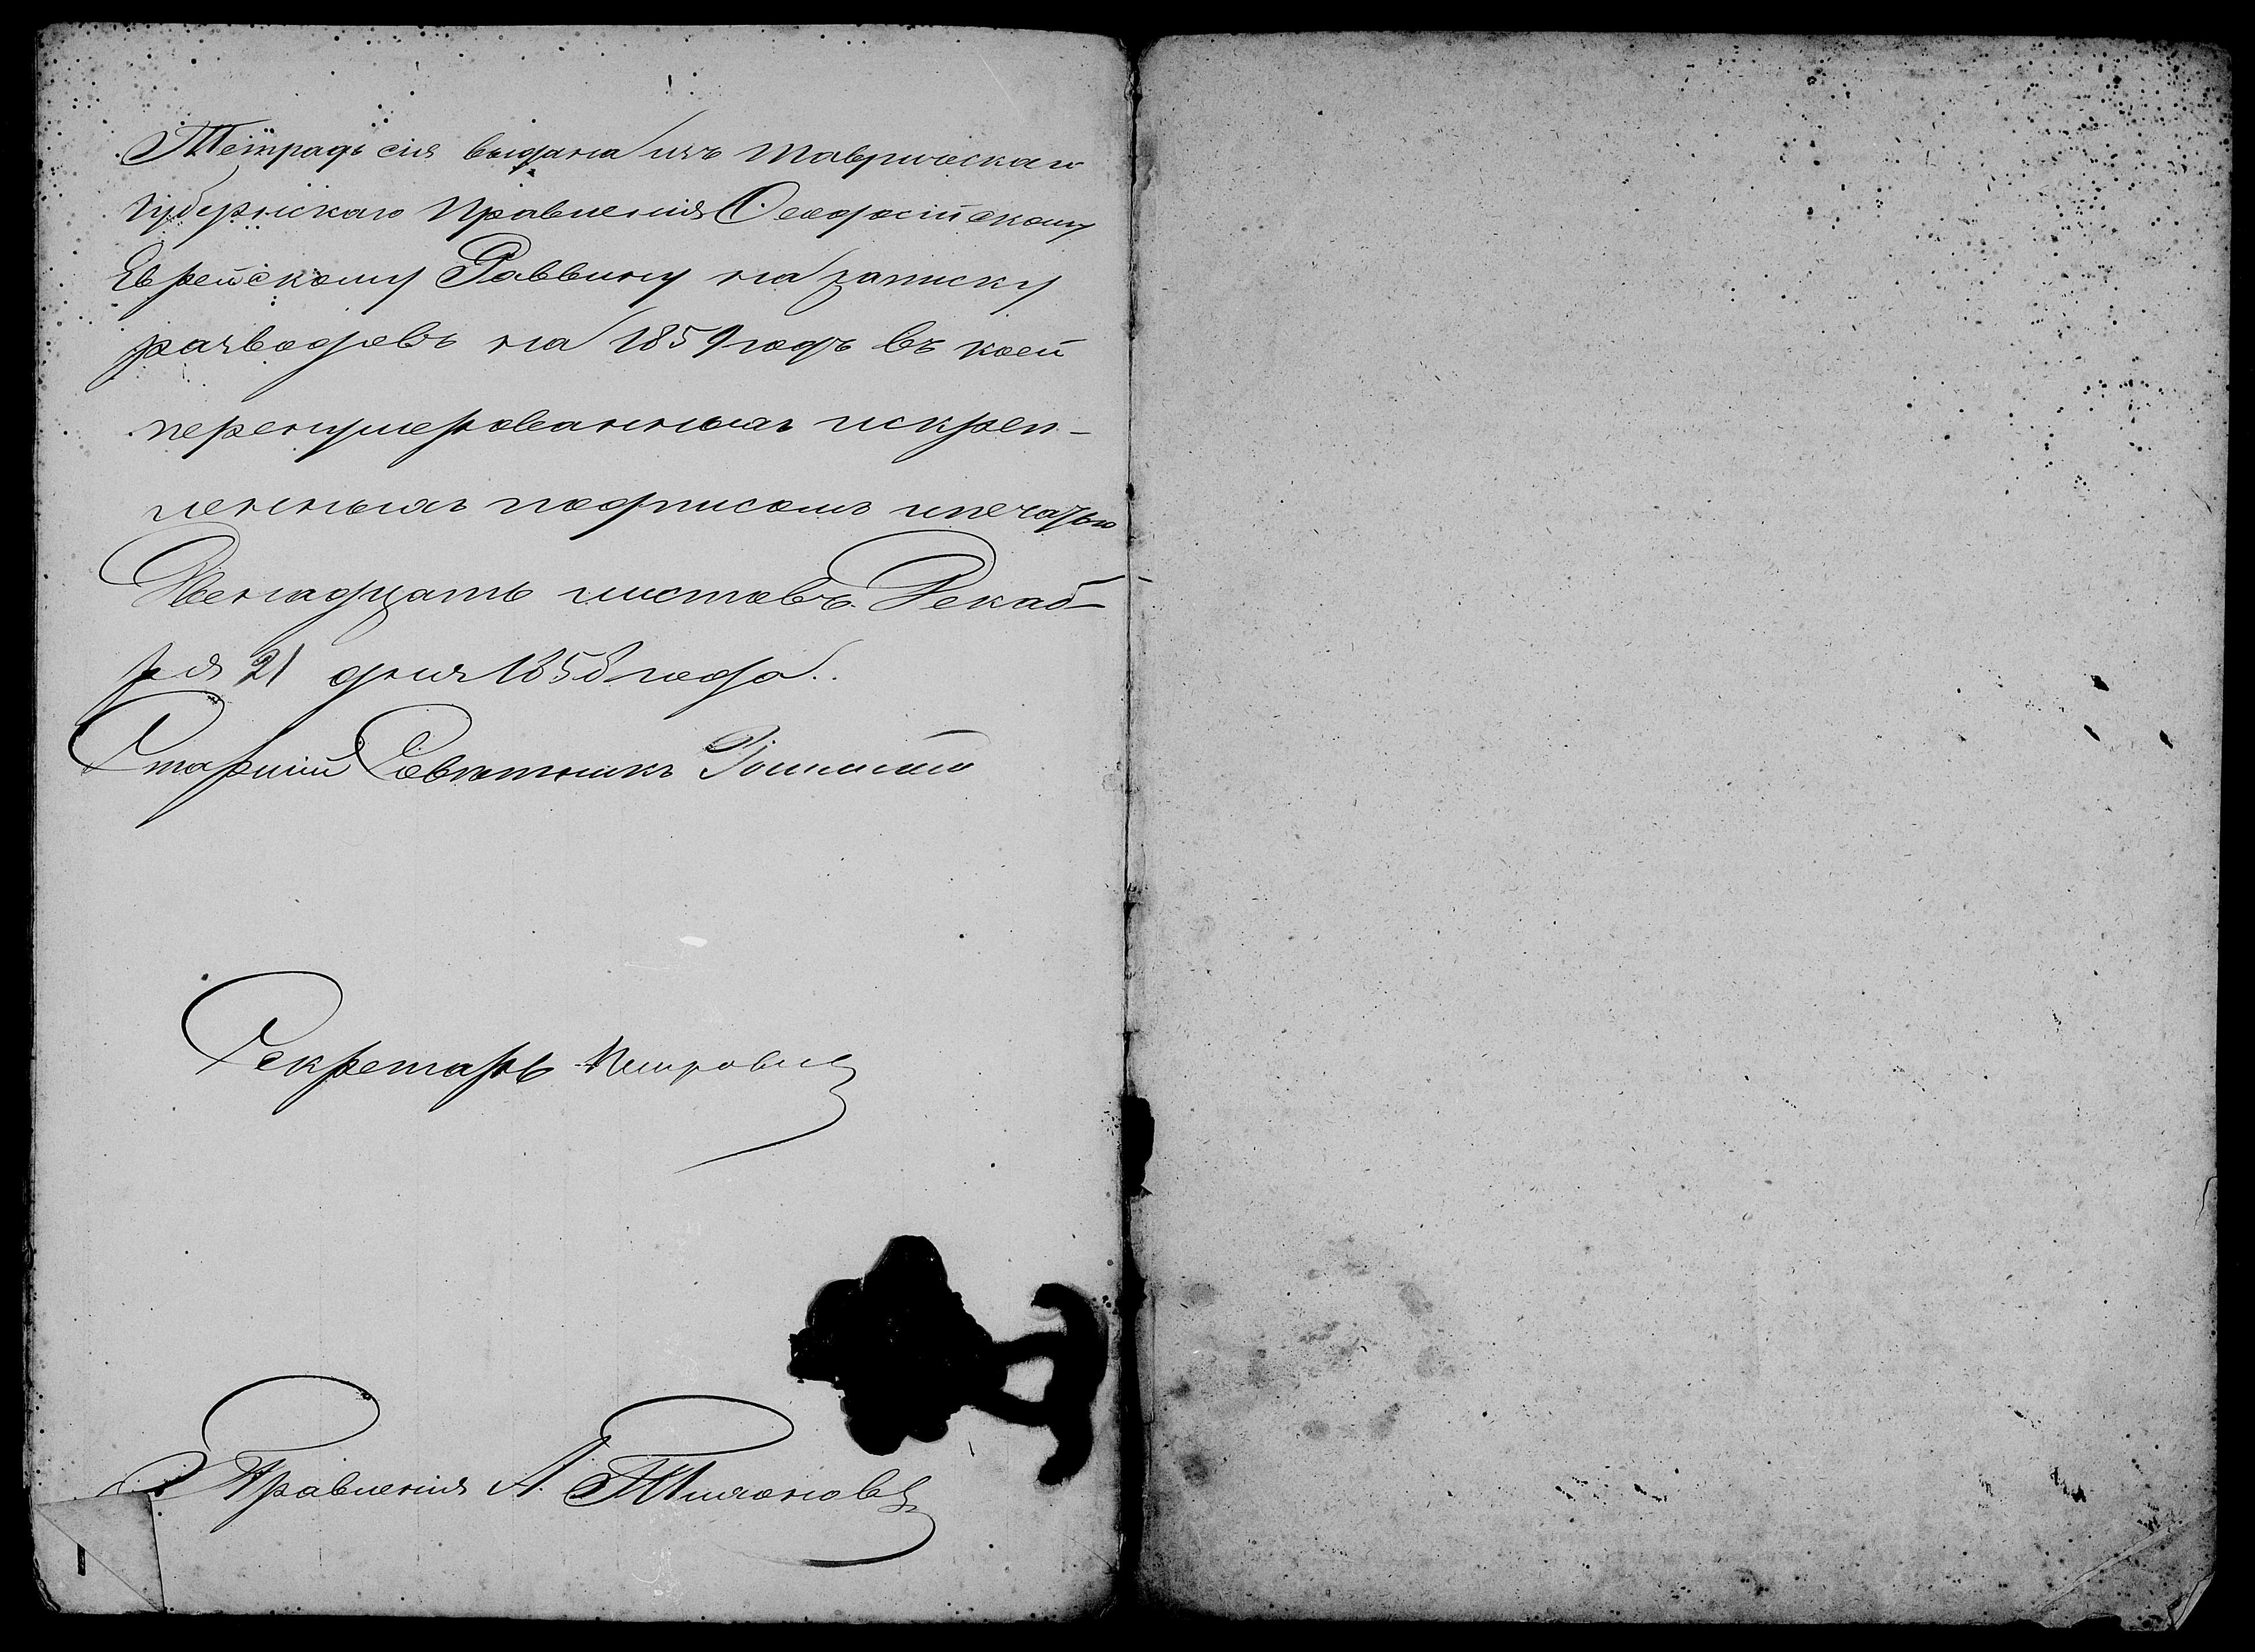 Тетрадь сия выдана изъ Таврическаго
Губернскаго Правленія Ѳеодосійскому
Еврейскому Раввину на записку
разводовъ на 1859 годъ въ коей
перенумерованныхъ искреп-
ленныхъ подписомъ ипечатью
Двенадцать листовъ. Декаб-
ря 21 дня 1858 года.
Старшій Совѣтникъ
Секретарь Петровъ
Правленія А.